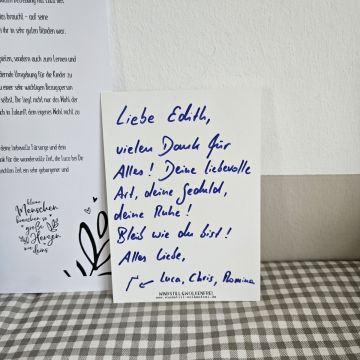 braucht – auf seine
ihr in sehr guten Händen war.
spielen, sondern auch zum Lernen und
Umgebung für die Kinder zu
einer sehr wichtigen Bezugsperson
selbst. Die liegt nicht nur das Wohl der
auch in Zukunft dem eigenes Wohl nicht zu
liebevolle Fürsorge und dem
für die wundervolle Zeit, die Luca bei Dir
Zeit, ein sehr geborgener und
kleine
Menschen
brauchen so
große
Herzen
wie
deins
Liebe Edith,
vielen Dank für
Alles! Deine liebevolle
Art, deine Geduld,
deine Ruhe!
Bleib wie du bist!
Alles Liebe,
Luca, Chris, Romina
WINDSTILL&WOLKENFREI